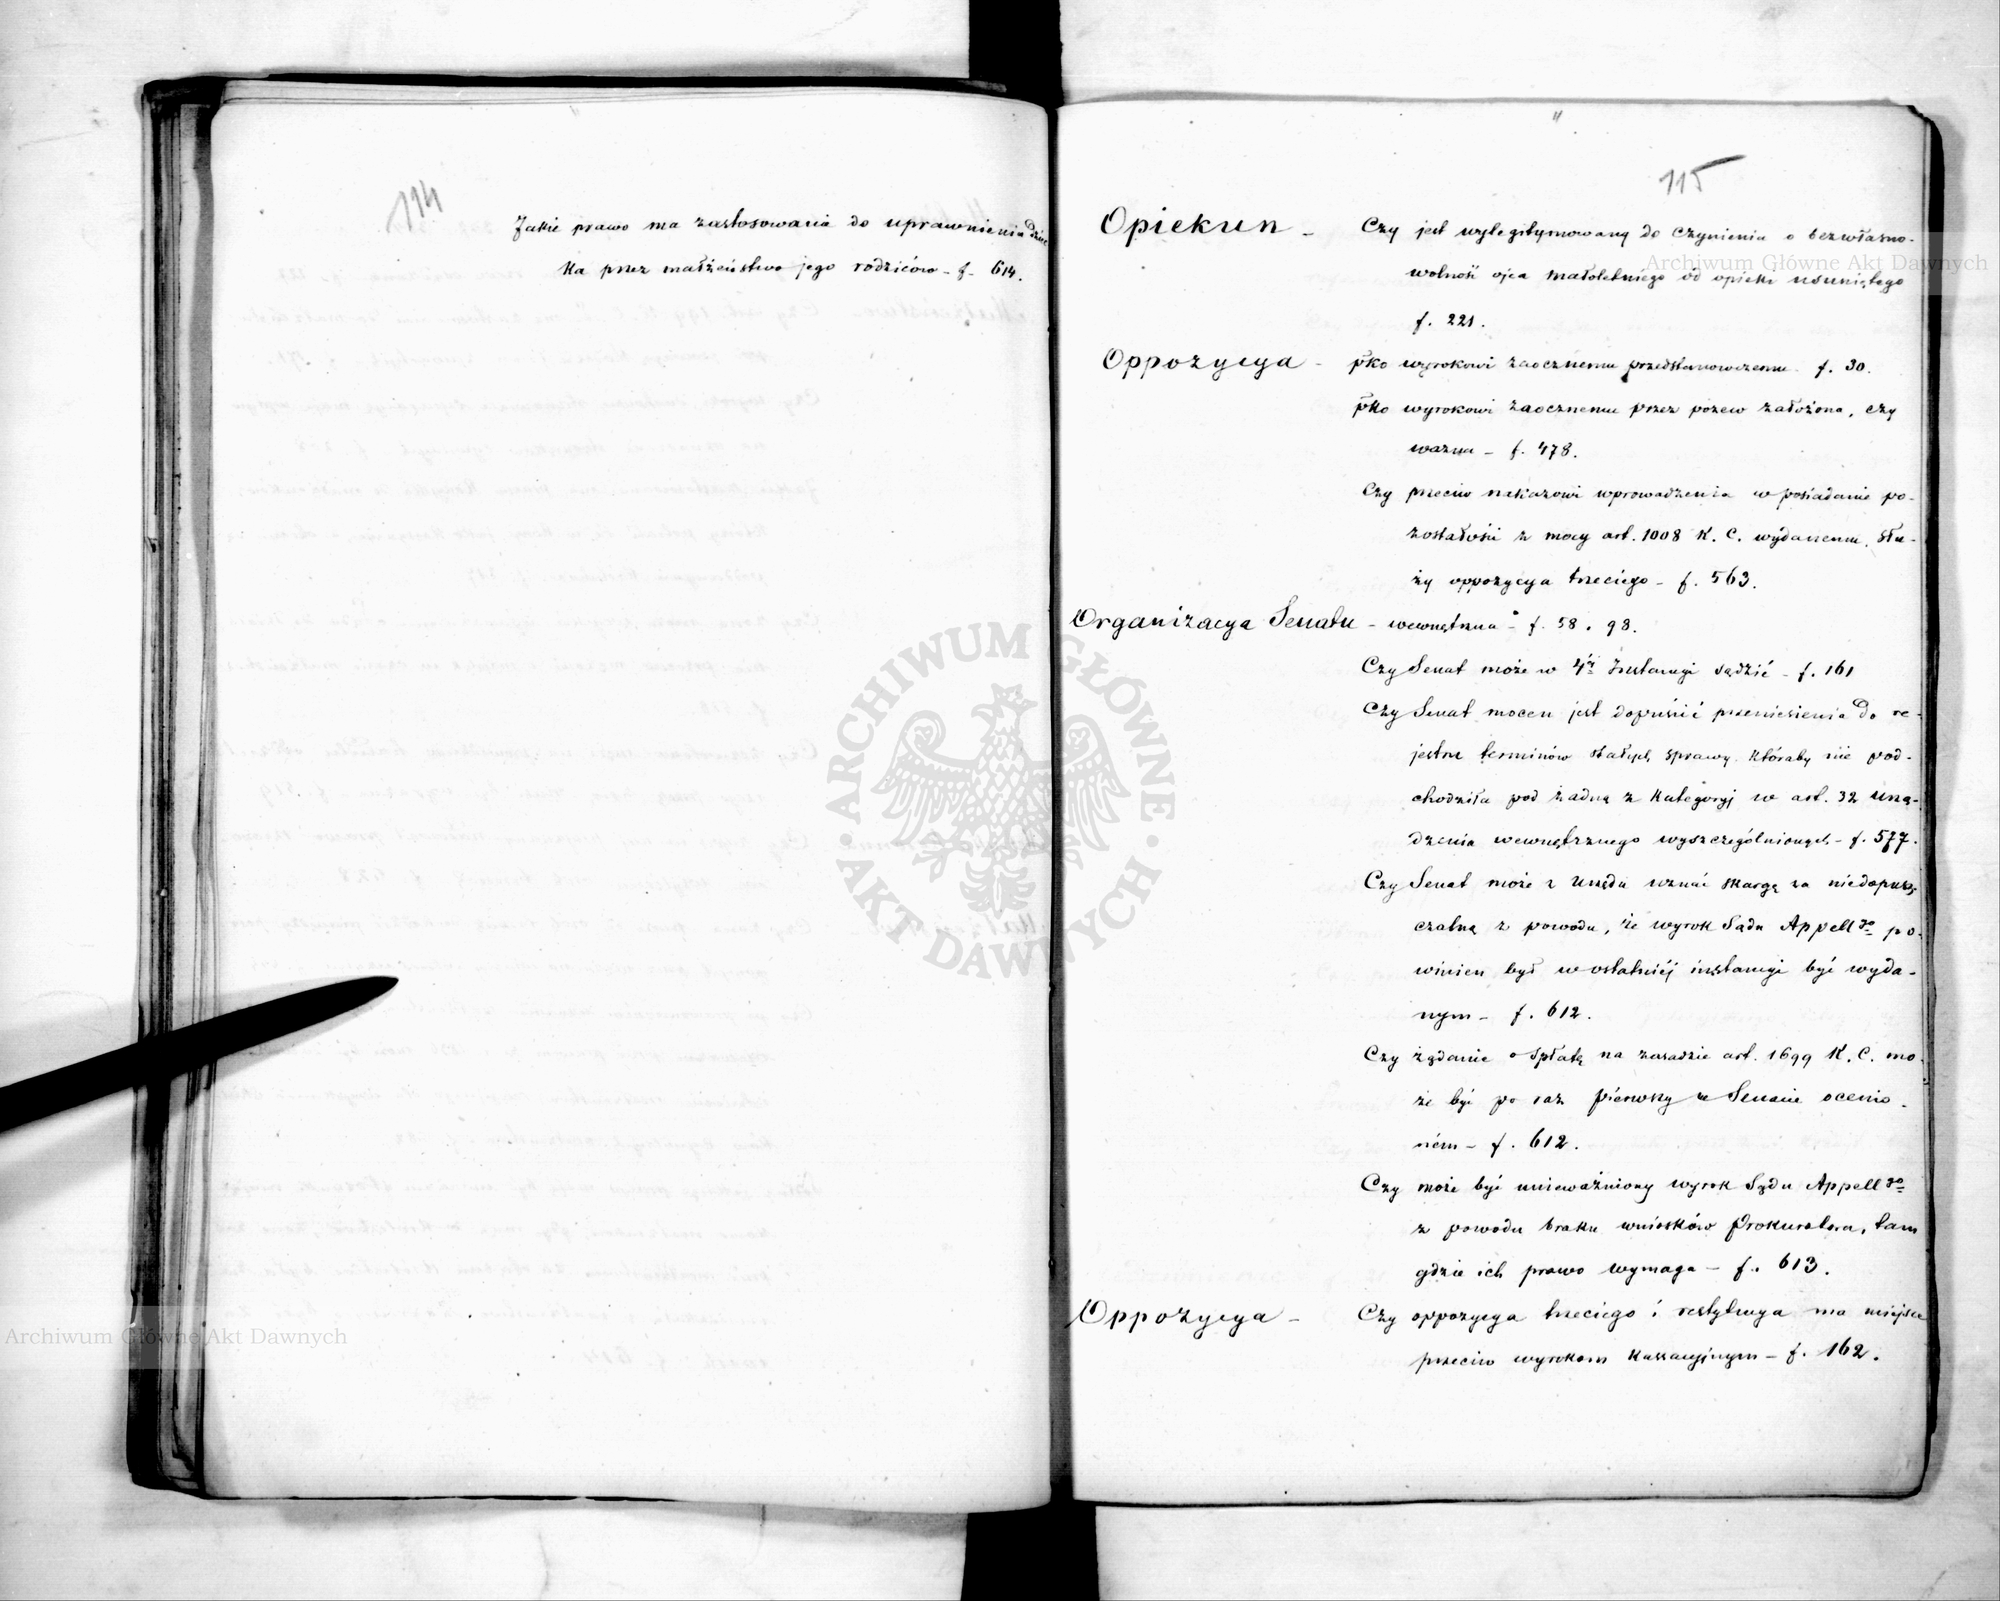 114
Jakie prawo ma zastosowania do uprawnienia dziec
ka przez małżeństwo jego rodziców - f. 614.
115
Opiekun - Czy jest wylegitymowany do czynienia o bezwłasno-
wolność ojca małoletniego od opieki usuniętego
f. 221.
Oppozycya - pko wyrokowi zaocznemu przedstanowczemu f. 30.
pko wyrokowi zaocznemu przez pozew założona, czy
ważna - f. 478.
Czy przeciw nakazowi wprowadzenia w posiadanie po-
zostałości z mocy art. 1008 K. C. wydanemu, słu-
ży oppozycya trzeciego - f. 563.
Organizacya Senatu - wewnętrzna - f. 58. 98.
Czy Senat może w 4éj Instancyi sądzić - f. 161
Czy Senat mocen jest dopuścić przeniesienia do re-
jestru terminów stałych sprawy, któraby nie pod-
chodziła pod żadną z kategoryj w art. 32 urzą-
dzenia wewnętrznego wyszczególnionych - f. 577.
Czy Senat może z urzędu uznać skargę za niedopusz-
czalną z powodu, że wyrok Sądu Appellgo po-
winien był w ostatniéj instancyi być wyda-
nym - f. 612.
Czy żądanie o spłatę na zasadzie art. 1699 K. C. mo-
że być po raz pierwszy w Senacie ocenio-
ném - f. 612.
Czy może być unieważniony wyrok Sądu Appellgo
z powodu braku wniosków Prokuratora, tam
gdzie ich prawo wymaga - f. 613.
Oppozycya - Czy oppozycya trzeciego i restytucya ma miejsce
przeciw wyrokom kassacyjnym - f. 162.
Archiwum Główne Akt Dawnych
ARCHIWUM GŁÓWNE
AKT DAWNYCH
Archiwum Główne Akt Dawnych